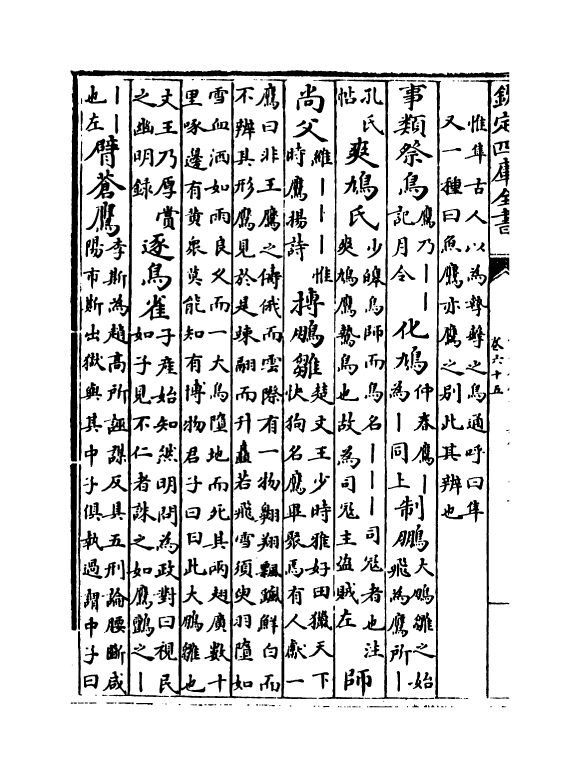 欽定四庫全書
卷六十五
惟隼古人以為鷙擊之鳥通呼曰隼
又一種曰魚鷹亦鷹之别此其辨也
事類祭鳥
鷹乃丨丨
記月令
化鳩
仲春鷹丨
為丨同上
制鵬
大鵬雛之始
飛為鷹所丨
孔氏
帖
爽鳩氏
少皥鳥師而鳥名丨丨丨司寇者也注
爽鳩鷹鷙鳥也故為司寇主盜賊左
師
尚父
維丨丨丨惟
時鷹揚詩
搏鵬雛
楚文王少時雅好田獵天下
快狗名鷹畢聚焉有人獻一
鷹曰非王鷹之儔俄而雲際有一物翱翔飄颻鮮白而
不辨其形鷹見於是竦翮而升矗若飛雪須臾羽墮如
雪血洒如雨良久而一大鳥墮地而死其兩翅廣數十
里啄邊有黄衆莫能知有博物君子曰曰此大鵬雛也
文王乃厚賞
之幽明録
逐鳥雀
子產始知然明問為政對曰視民
如子見不仁者誅之如鷹鸇之丨
丨丨
也左
臂蒼鷹
李斯為趙高所誣謀反具五刑論腰斷咸
陽市斯出獄與其中子俱執過謂中子曰